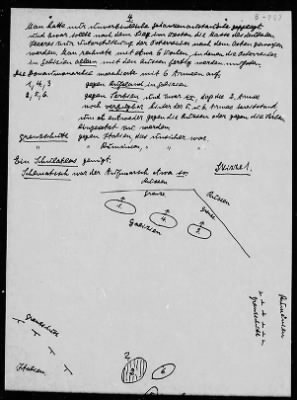 4
B-733
Man hatte mit
und zwar, sollte nach dem Siege im Westen die Masse des deutschen
Heeres mit Unterstützung der Österreicher nach dem Osten geworfen
werden. Man rechnete mit etwa 6 Wochen, in denen die Österreicher
in Galizien allein mit den Russen fertig werden mußten.
Die Donaumonarchie marschierte mit 6 Armeen auf:
1, 4, 3 gegen Rußland in Galizien
2, 5, 6. gegen Serbien und zwar so, daß die 2. Armee
noch verfügbar hinter der 5. u. 6. Armee bereitstand,
um entweder gegen die Russen oder gegen die Serben
eingesetzt zu werden
Grenzschutz gegen Italien, das unsicher war.
" " Rumänien, "
Ein genügt. Skizze 1.
Schematisch war der Aufmarsch etwa so:
Russen
Grenze
Russen
Grenze
1.
4.
3.
Galizien
Rumänien
Grenzschutz
Grenzschutz
Italien
2
5
6